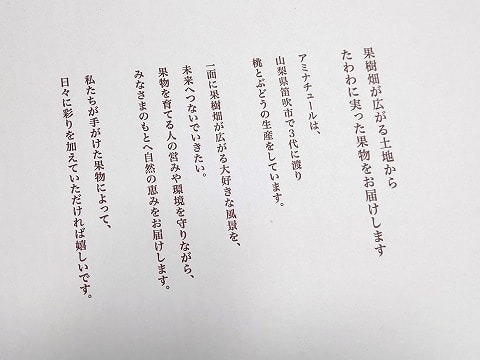 果樹畑が広がる土地から
たわわに実った果物をお届けします
アミナチュールは、
山梨県笛吹市で3代に渡り
桃とぶどうの生産をしています。
一面に果樹畑が広がる大好きな風景を、
未来へつないでいきたい。
果物を育てる人の営みや環境を守りながら、
みなさまのもとへ自然の恵みをお届けします。
私たちが手がけた果物によって、
日々に彩りを加えていただければ嬉しいです。